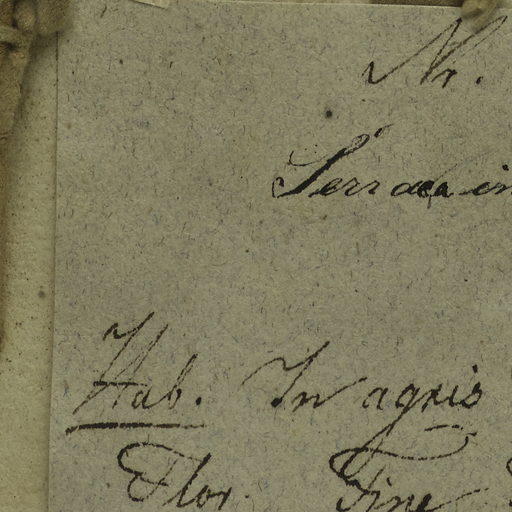 Nr.
Serraca in
Hab. In agris
Flor. Fine